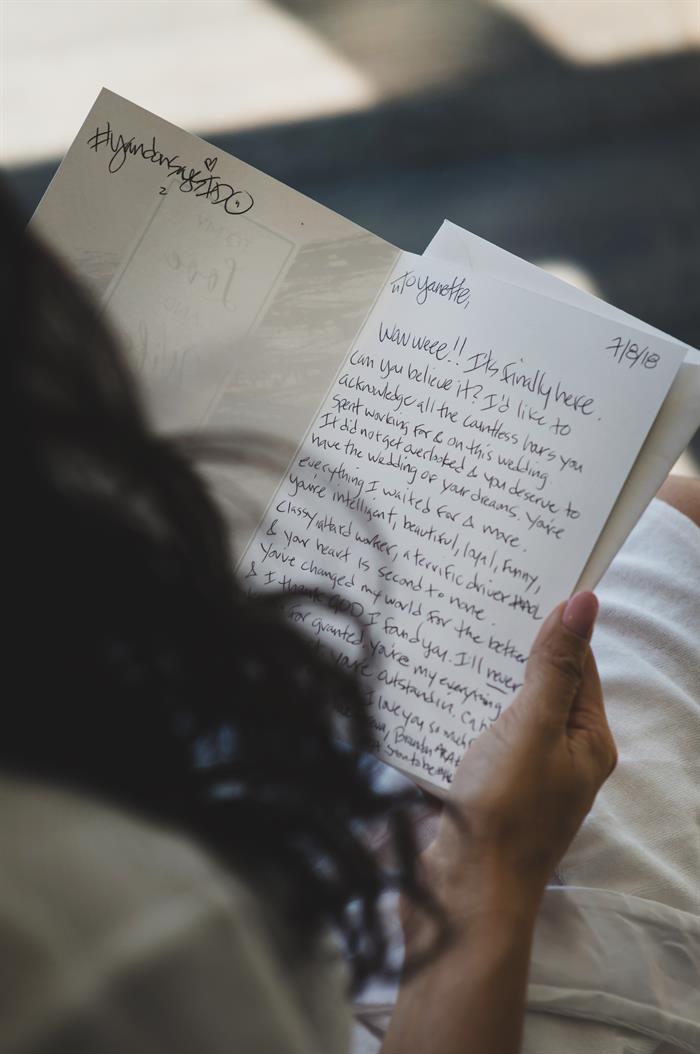 #YandonsaysIDO
To Yanette,
7/8/18
Wawweee!! It's finally here.
can you believe it? I'd like to
acknowledge all the countless hours you
spent working for & on this wedding.
It did not get overlooked & you deserve to
have the wedding of your dreams. You're
everything I waited for & more.
You're intelligent, beautiful, loyal, funny,
classy, a hard worker, a terrific driver
& your heart is second to none.
You've changed my world for the better
& I thank GOD I found you. I'll never
for granted. You're my everything
you're outstandin.
I love you so much
Brandon
soon to be